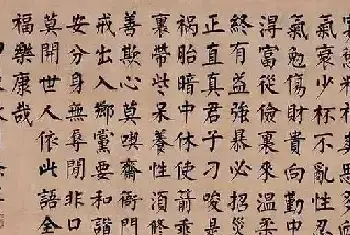 氣衰少杯不亂性忍
氣勉傷財貴向勤中
得富從儉裏來溫柔
終有益強暴必招災
正直真君子刁唆是
禍胎暗中休使箭乖
裏帶些呆養性須修
善欺心莫喫齋衙門
戒出入鄉黨要和諧
安分身無辱閒非口
莫開世人依此語全
福樂康哉